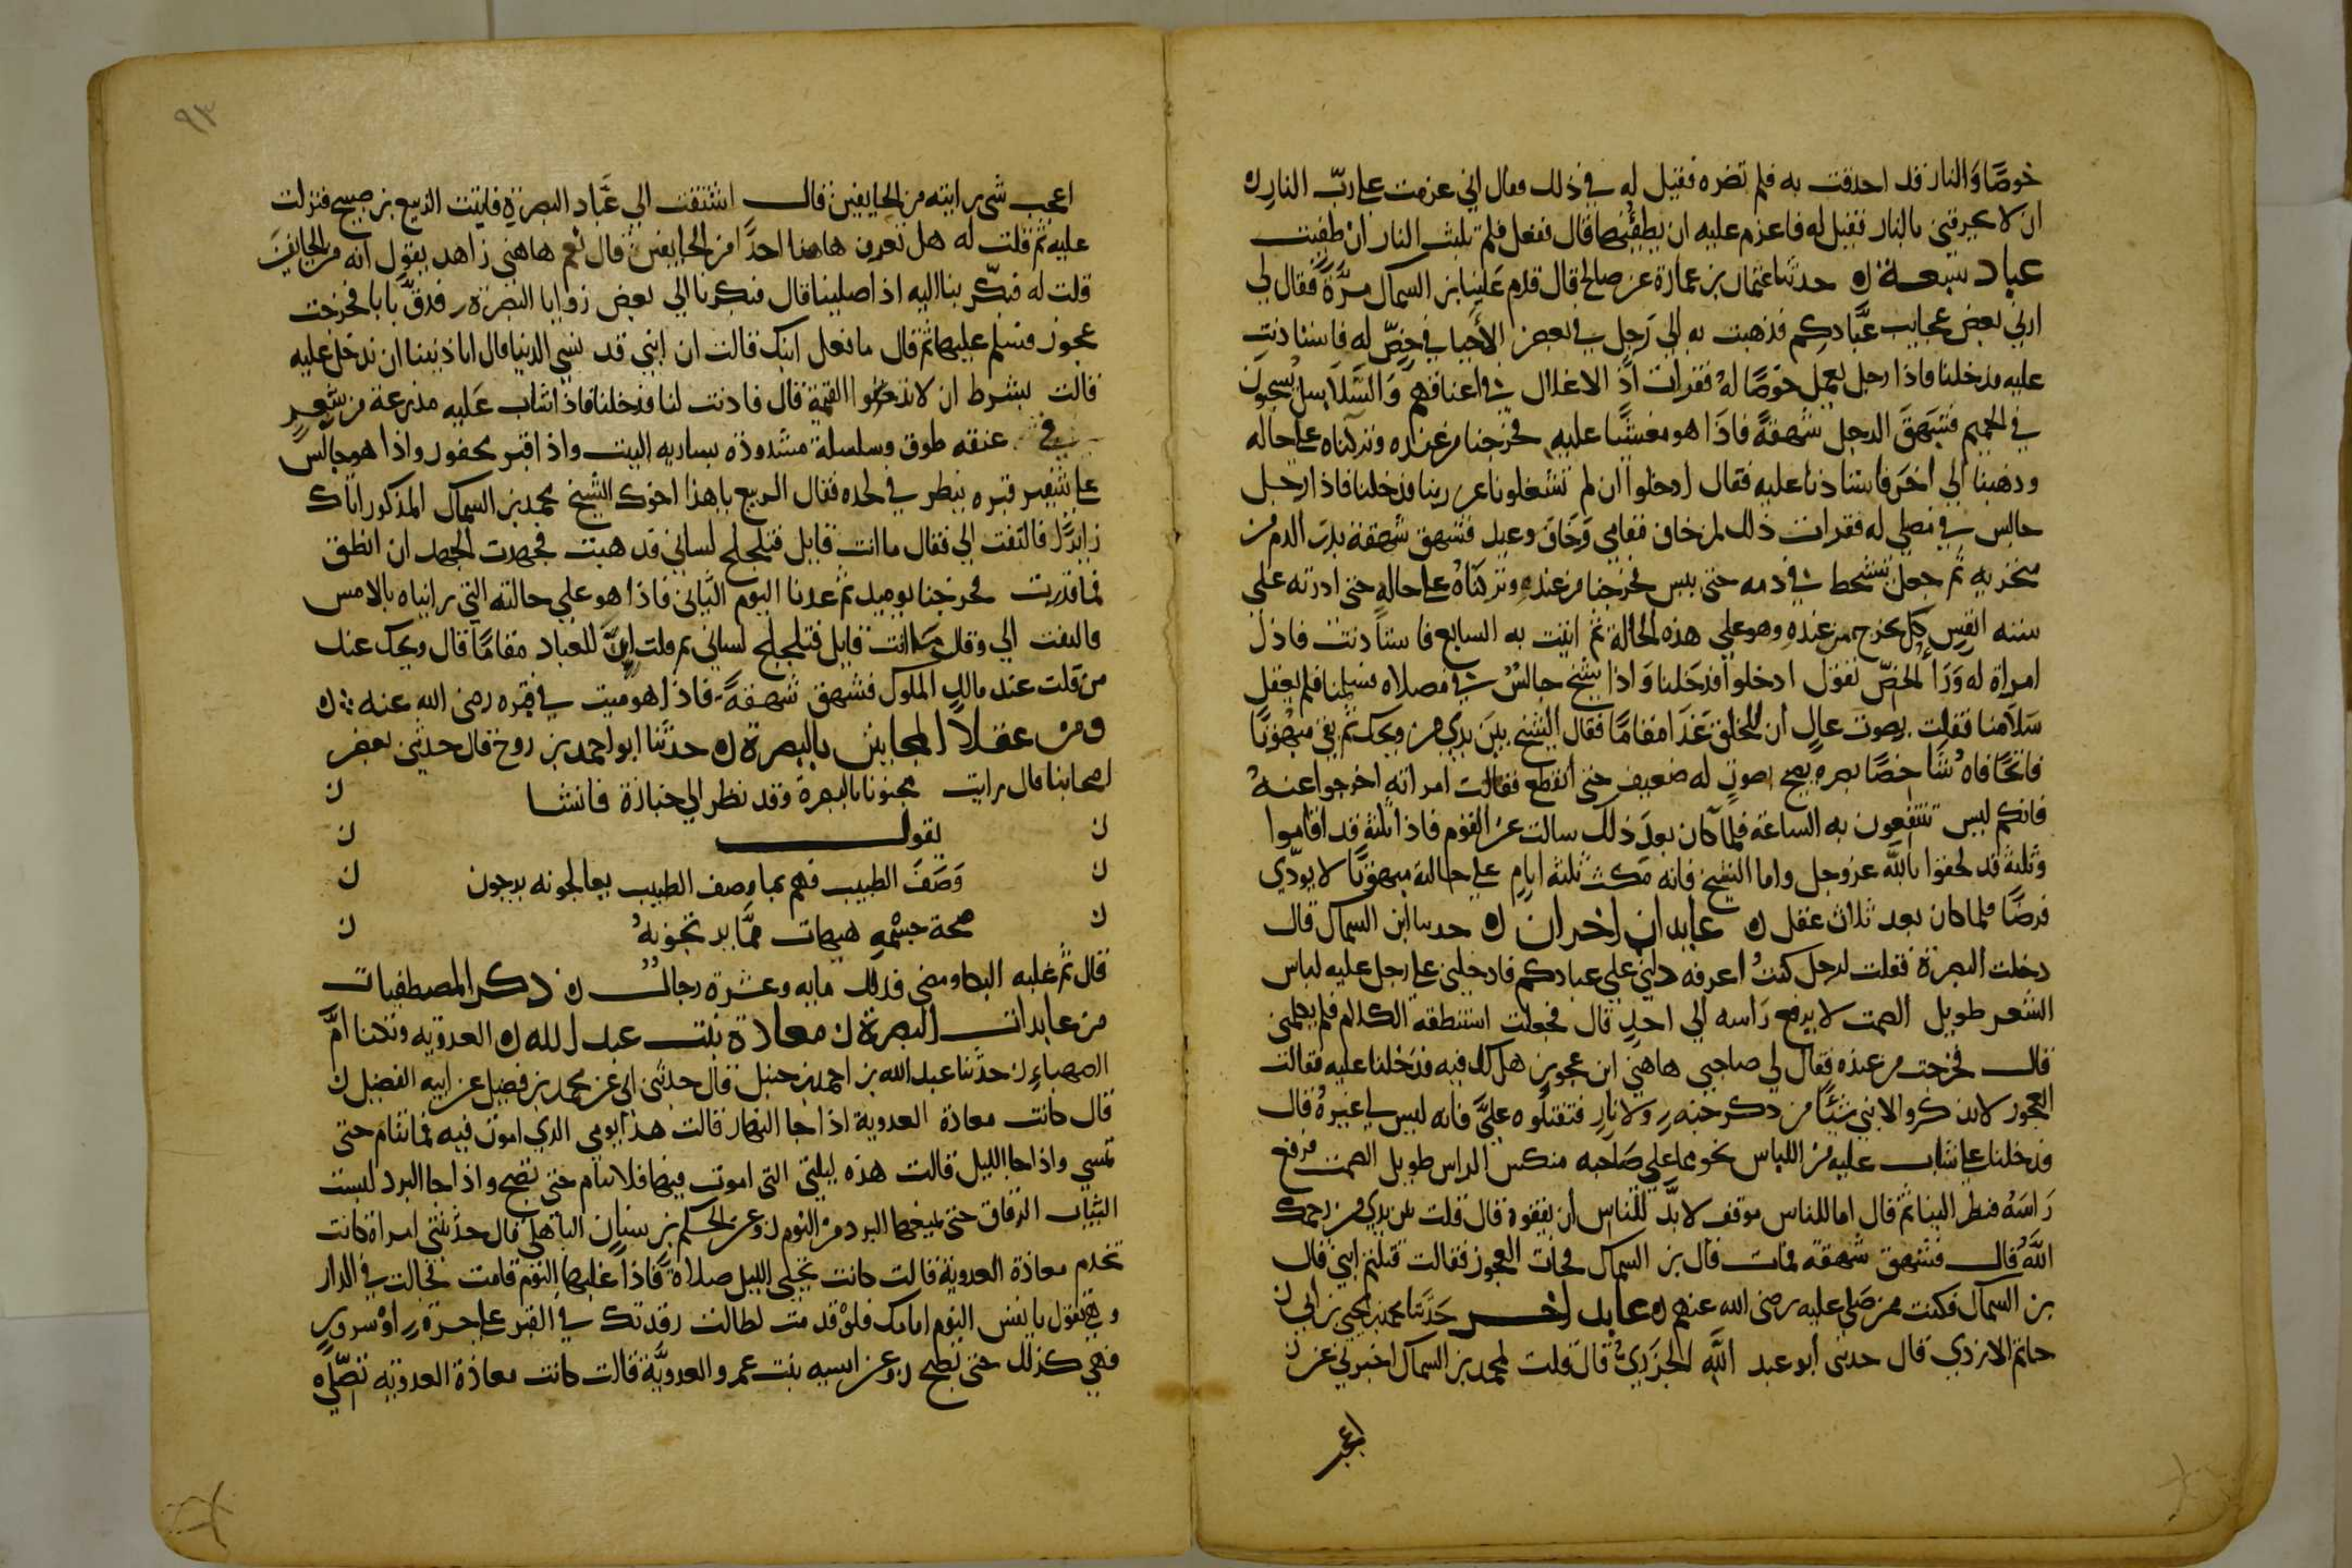 خوصًا والنار قد احدقت به فلم تضره فقيل له في ذلك فقال اني عزمت على ربّ النار ن
ان لا يحرقني بالنار فقيل له فاعزم عليه ان يطفئها قال ففعل فلم تلبث النار ان طفيت
عباد سبعة ن حدثنا عثمان بن عمارة عن صالح قال قدم علينا بن السماك مرّة فقال لي
ارني بعض عجايب عبّادكم فذهبت به الى رجل في بعض الأحيا في خصّ له فاستاذنت
عليه فدخلنا فاذا رجل يعمل خوصًا له فقرات اذ الاغلال في اعناقهم والسلاسل يسحبون
في الحميم فشهق الرجل شهقة فاذا هو مغشيًا عليه فخرجنا من عنده وتركناه على حاله
وذهبنا الي اخر فاستاذنا عليه فقال ادخلوا ان لم تشغلونا عن ربنا فدخلنا فاذا رجل
جالس في مصلى له فقرات ذلك لمن خاف مقامي وخاف وعيد فشهق شهقة بدر الدم من
منخريه ثم جعل يتشحط في دمه حتى يبس فخرجنا من عنده وتركناه على حاله حتى ادرته على
ستة انفس كل نخرج من عنده وهو على هذه الحالة ثم اتيت به السابع فاستاذنت فاذن
امراة له وراء الخصّ تقول ادخلوا فدخلنا واذا شيخ جالس في مصلاه فسلمنا فلم يعقل
سلامنا فقلت بصوت عال ان للخلق غدا مقامًا فقال الشيخ بين يدي من ويحك ثم بقي مبهوتًا
فاتحًا فاه شاخصًا بصره يصيح بصوت له ضعيف حتى انقطع فقالت امراته اخرجوا عنه
فانكم ليس تنتفعون به الساعة فلما كان بعد ذلك سالت عن القوم فاذا ثلثة قد افاقوا
وثلثة قد لحقوا بالله عز وجل واما الشيخ فانه مكث ثلثة ايام على حالته مبهوتًا لا يؤدّي
فرضًا فلما كان بعد ثلاث عقل ن عابدان اخران ن حدثنا ابن السماك قال
دخلت البصرة فقلت لرجل كنت اعرفه دلني على عبادكم فادخلني على رجل عليه لباس
الشعر طويل الصمت لا يرفع راسه الى احد قال فجعلت استنطقه الكلام فلم يكلمني
قال فخرجت من عنده فقال لي صاحبي هاهنا ابن عجوز هل لك فيه فدخلنا عليه فقالت
العجوز لا تذكروا لابني شيئًا من ذكر جنه ولا نار فتقتلوه عليّ فانه ليس لي غيره قال
فدخلنا على شاب عليه من اللباس نحو مما على صاحبه منكس الراس طويل الصمت فرفع
راسه فنظر الينا ثم قال اما للناس موقف لا بدّ للناس أن يقفوه قال قلت بين يدي من رحمك
الله قال فشهق شهقه فمات قال بن السماك فجات العجوز فقالت قتلتم ابني قال
بن السماك فكنت ممن صلى عليه رضى الله عنهم ن عابد اخر حدثنا محمد بن يحيى بن ابي ن
حاتم الازدي قال حدثني أبو عبد الله الجزري قال قلت لمحمد بن السماك اخبرني عن ن
اعجب
٩٣
اعجب شي رايته من الخايفين قال اشتقت الي عبّاد البصرة فاتيت الربيع بن صبيح فنزلت
عليه ثم قلت له هل تعرف هاهنا احدًا من الخايفين قال نعم هاهنا زاهد يقول انه من الخايفين
قلت له فبكّر بنا اليه اذا صلينا قال فبكرنا الي بعض زوايا البصرة فدقّ بابا فخرجت
عجوز فسلم عليها ثم قال ما فعل ابنك قالت ان ابني قد نسي الدنيا قال اتاذنينا ان ندخل عليه
قالت بشرط ان لا تذكروا القيمة قال فاذنت لنا فدخلنا فاذا شاب عليه مدرعة من شعر
في عنقه طوق وسلسلة مشدودة بسارية البيت واذا قبر محفور واذا هو جالس
على شفير قبره ينظر في لحده فقال الربيع يا هذا اخوك الشيخ محمد بن السماك المذكور اتاك
زايرًا فالتفت الي فقال ما انت قايل فتلجلج لساني قد هبت فجهدت الجهد ان انطق
فما قدرت فخرجنا يوميد ثم عدنا اليوم الثاني فاذا هو على حالته التي رايناه بالامس
فالتفت الي وقال ما انت قايل فتلجلج لساني ثم قلت إنّ للعباد مقامًا قال ويحك عند
من قلت عند مالك الملوك فشهق شهقة فاذا هو ميت في قبره رضى الله عنه ن
ومن عقلا المجانين بالبصرة ن حدثنا ابو احمد بن روح قال حدثني بعض
اصحابنا قال رايت مجنونا بالبصرة وقد نظر الى جنازة فانشا ن
ن يقول ن
ن وصف الطبيب فهم بما وصف الطبيب يعالجونه يرجون ن
ن صحة جسمه هيهات ممّا يرتجونه ن
قال ثم غلبه البكا ومضى فذلك مايه وعشرة رجال ن ذكر المصطفيات
من عابدات البصرة ن معاذة بنت عبد الله ن العدويه وتكنا امّ
الصهباء ن حدثنا عبد الله بن احمد بن حنبل قال حدثني ابي عن محمد بن فضيل عن ابيه الفضيل ن
قال كانت معاذة العدوية اذا جا النهار قالت هذا يومي الذي اموت فيه فما تنام حتى
تمسي واذا جا الليل قالت هذه ليلتي التي اموت فيها فلا تنام حتى تصبح واذا جا البرد لبست
الثياب الرقاق حتى يمنعها البرد من النوم ن وعن الحكم بن سنان الباهلي قال حدثتني امراة كانت
تخدم معاذة العدوية قالت كانت تحيي الليل صلاة فاذا غلبها النوم قامت فجالت في الدار
وهي تقول يا نفس النوم امامك فلو قدمت لطالت رقدتك في القبر على حسرة او سرور
فهي كذلك حتى تصبح ن وعن اسيه بنت عمرو العدويّة قالت كانت معاذة العدويه تصلّي